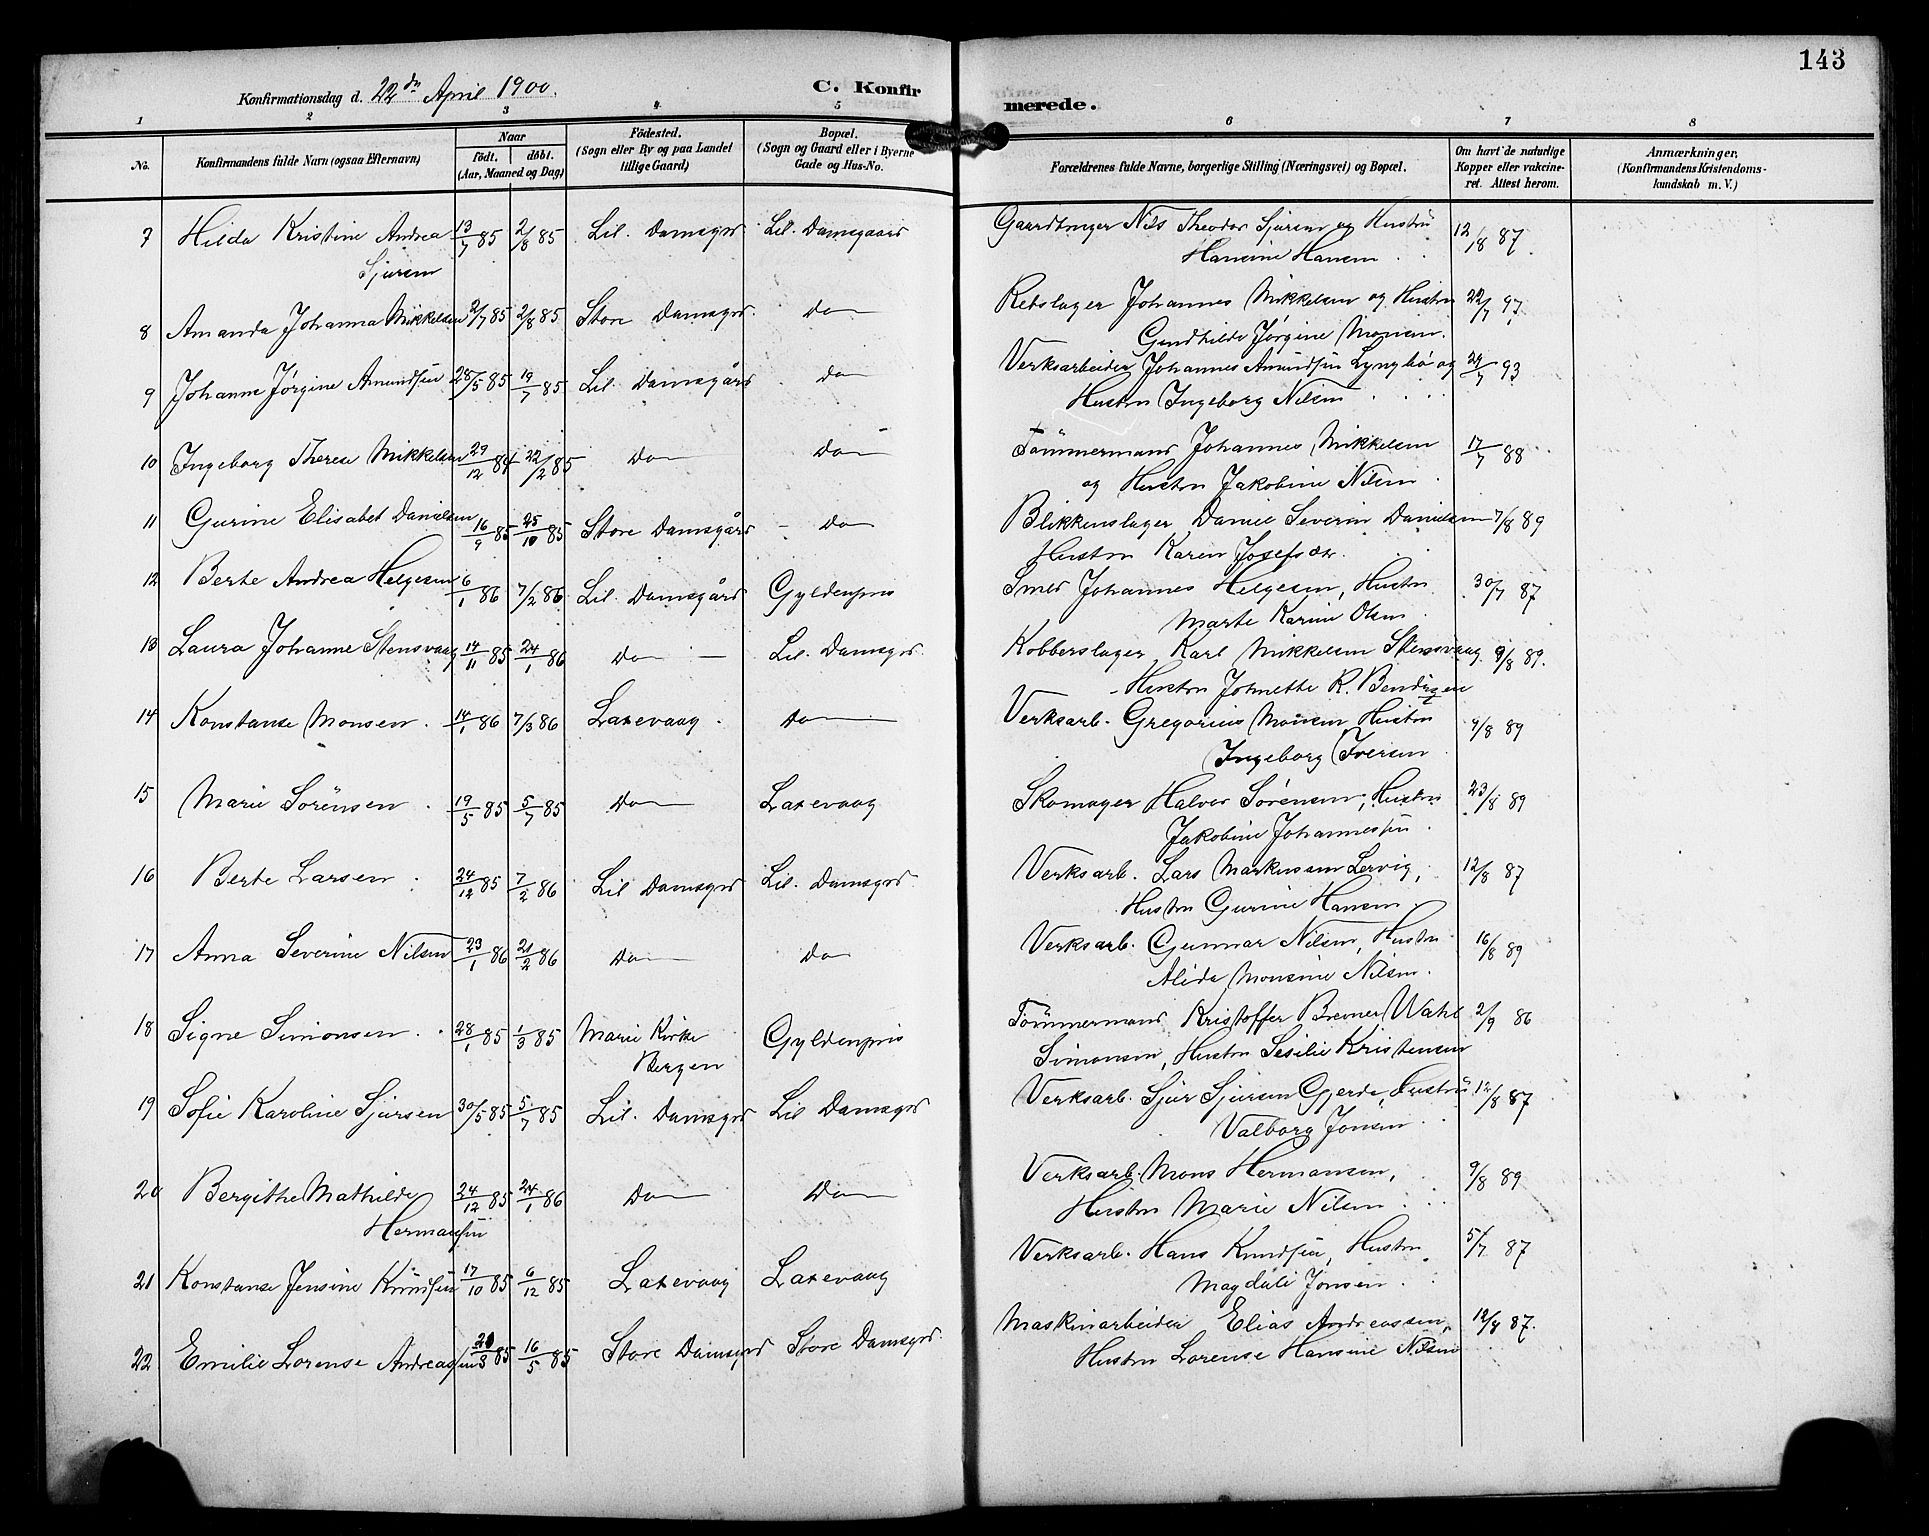 143
Konfirmationsdag d. 22de April 1900. C. Konfirmerede.
1 2 3 4 5 6 7 8
No. Konfirmandens fulde Navn (ogsaa Efternavn) Naar født. døbt. (Aar, Maaned og Dag) Födested. (Sogn eller By og paa Landet tillige Gaard) Bopæl. (Sogn og Gaard eller i Byerne Gade og Hus-No. Forældrenes fulde Navne, borgerlige Stilling (Næringsvei) og Bopæl. Om havt de naturlige Kopper eller vakcineret. Attest herom. Anmærkninger. (Konfirmandens Kristendomskundskab m. V.)
7 Hilda Kristine Andrea 13/7 85 2/8 85 Lil. Damsgrd Lil. Damsgaard Gaardbruger Nils Theodor Sjursen og Hustru 12/8 87
Sjursen Hansine Hansen
8 Amanda Johanna Mikkelsen 2/7 85 2/8 85 Store Damsgrd. Do Rebslager Johannes Mikkelsen og Hustru 22/7 97
Gundhilde Jørgine Monsen.
9 Johanne Jørgine Amundsen 28/5 85 19/7 85 Lil. Damsgård Do Verksarbeider Johannes Amundsen Lyngbö og 24/7 93
Hustru Ingeborg Nilsen
10 Ingeborg Therese Mikkelsen 29/12 84 22/2 85 Do Do Tømmermand Johannes Mikkelsen 17/7 88
og Hustru Jakobine Nilsen
11 Gurine Elisabet Danielsen 16/9 85 25/10 85 Store Damsgård Do Blikkenslager Daniel Severin Danielsen 7/8 89
Hustru Karen Josefsdtr.
12 Berte Andrea Helgesen 6/1 86 7/2 86 Lil. Damsgård Gyldenpris Smed Johannes Helgesen, Hustru 30/7 87
Marte Karine Olsen
13 Laura Johanne Stensvaag 14/11 85 24/1 86 Do Lil. Damsgrd. Kobberslager Karl Mikkelsen Stensvaag 9/8 89.
Hustru Johnette R. Bendigen
14 Konstanse Monsen 14/1 86 7/3 86 Laxevaag Do Verksarb. Gregorius Monsen Hustru 9/8 89
Ingeborg Iversen
15 Marie Sørensen 19/5 85 5/7 85 Do Laxevaag Skomager Halvor Sørensen, Hustru 23/8 89
Jakobine Johannessen
16 Berte Larsen 24/12 85 7/2 86 Lil Damsgrd Lil. Damsgrd. Verksarb. Lars Markussen Lervig, 12/8 87
Hustru Gurine Hansen
17 Anna Severine Nilsen 23/1 86 21/2 86 Do Do Verksarb. Gunnar Nilsen, Hustru 16/8 89
Alida Monsine Nilsen.
18 Signe Simonsen 28/1 85 1/3 85 Marie Kirke Gyldenpris Tømmermand Kristoffer Bremer Wahl 2/9 86
Bergen Simonsen, Hustru Sesilie Kristensen
19 Sofie Karoline Sjursen 30/5 85 5/7 85 Lil. Damsgrd Lil Damsgrd Verksarb. Sjur Sjursen Gjerde, Hustru 12/8 87
Valborg Jonsen
20 Bergithe Mathilde 24/12 85 24/1 86 Do Do Verksarb. Mons Hermansen, 9/8 89
Hermansen Hustru Marie Nilsen
21 Konstanse Jensine Knudsen 17/10 85 6/12 85 Laxevaag Laxevaag Verksarb. Hans Knudsen, Hustru 5/7 87
Magdali Jonsen
22 Emilie Lorense Andreassen 20/3 85 16/5 85 Store Damsgrd Store Damsgrd. Maskinarbeider Elias Andreassen, 12/8 87.
Hustru Lorense Hansine Nilsen